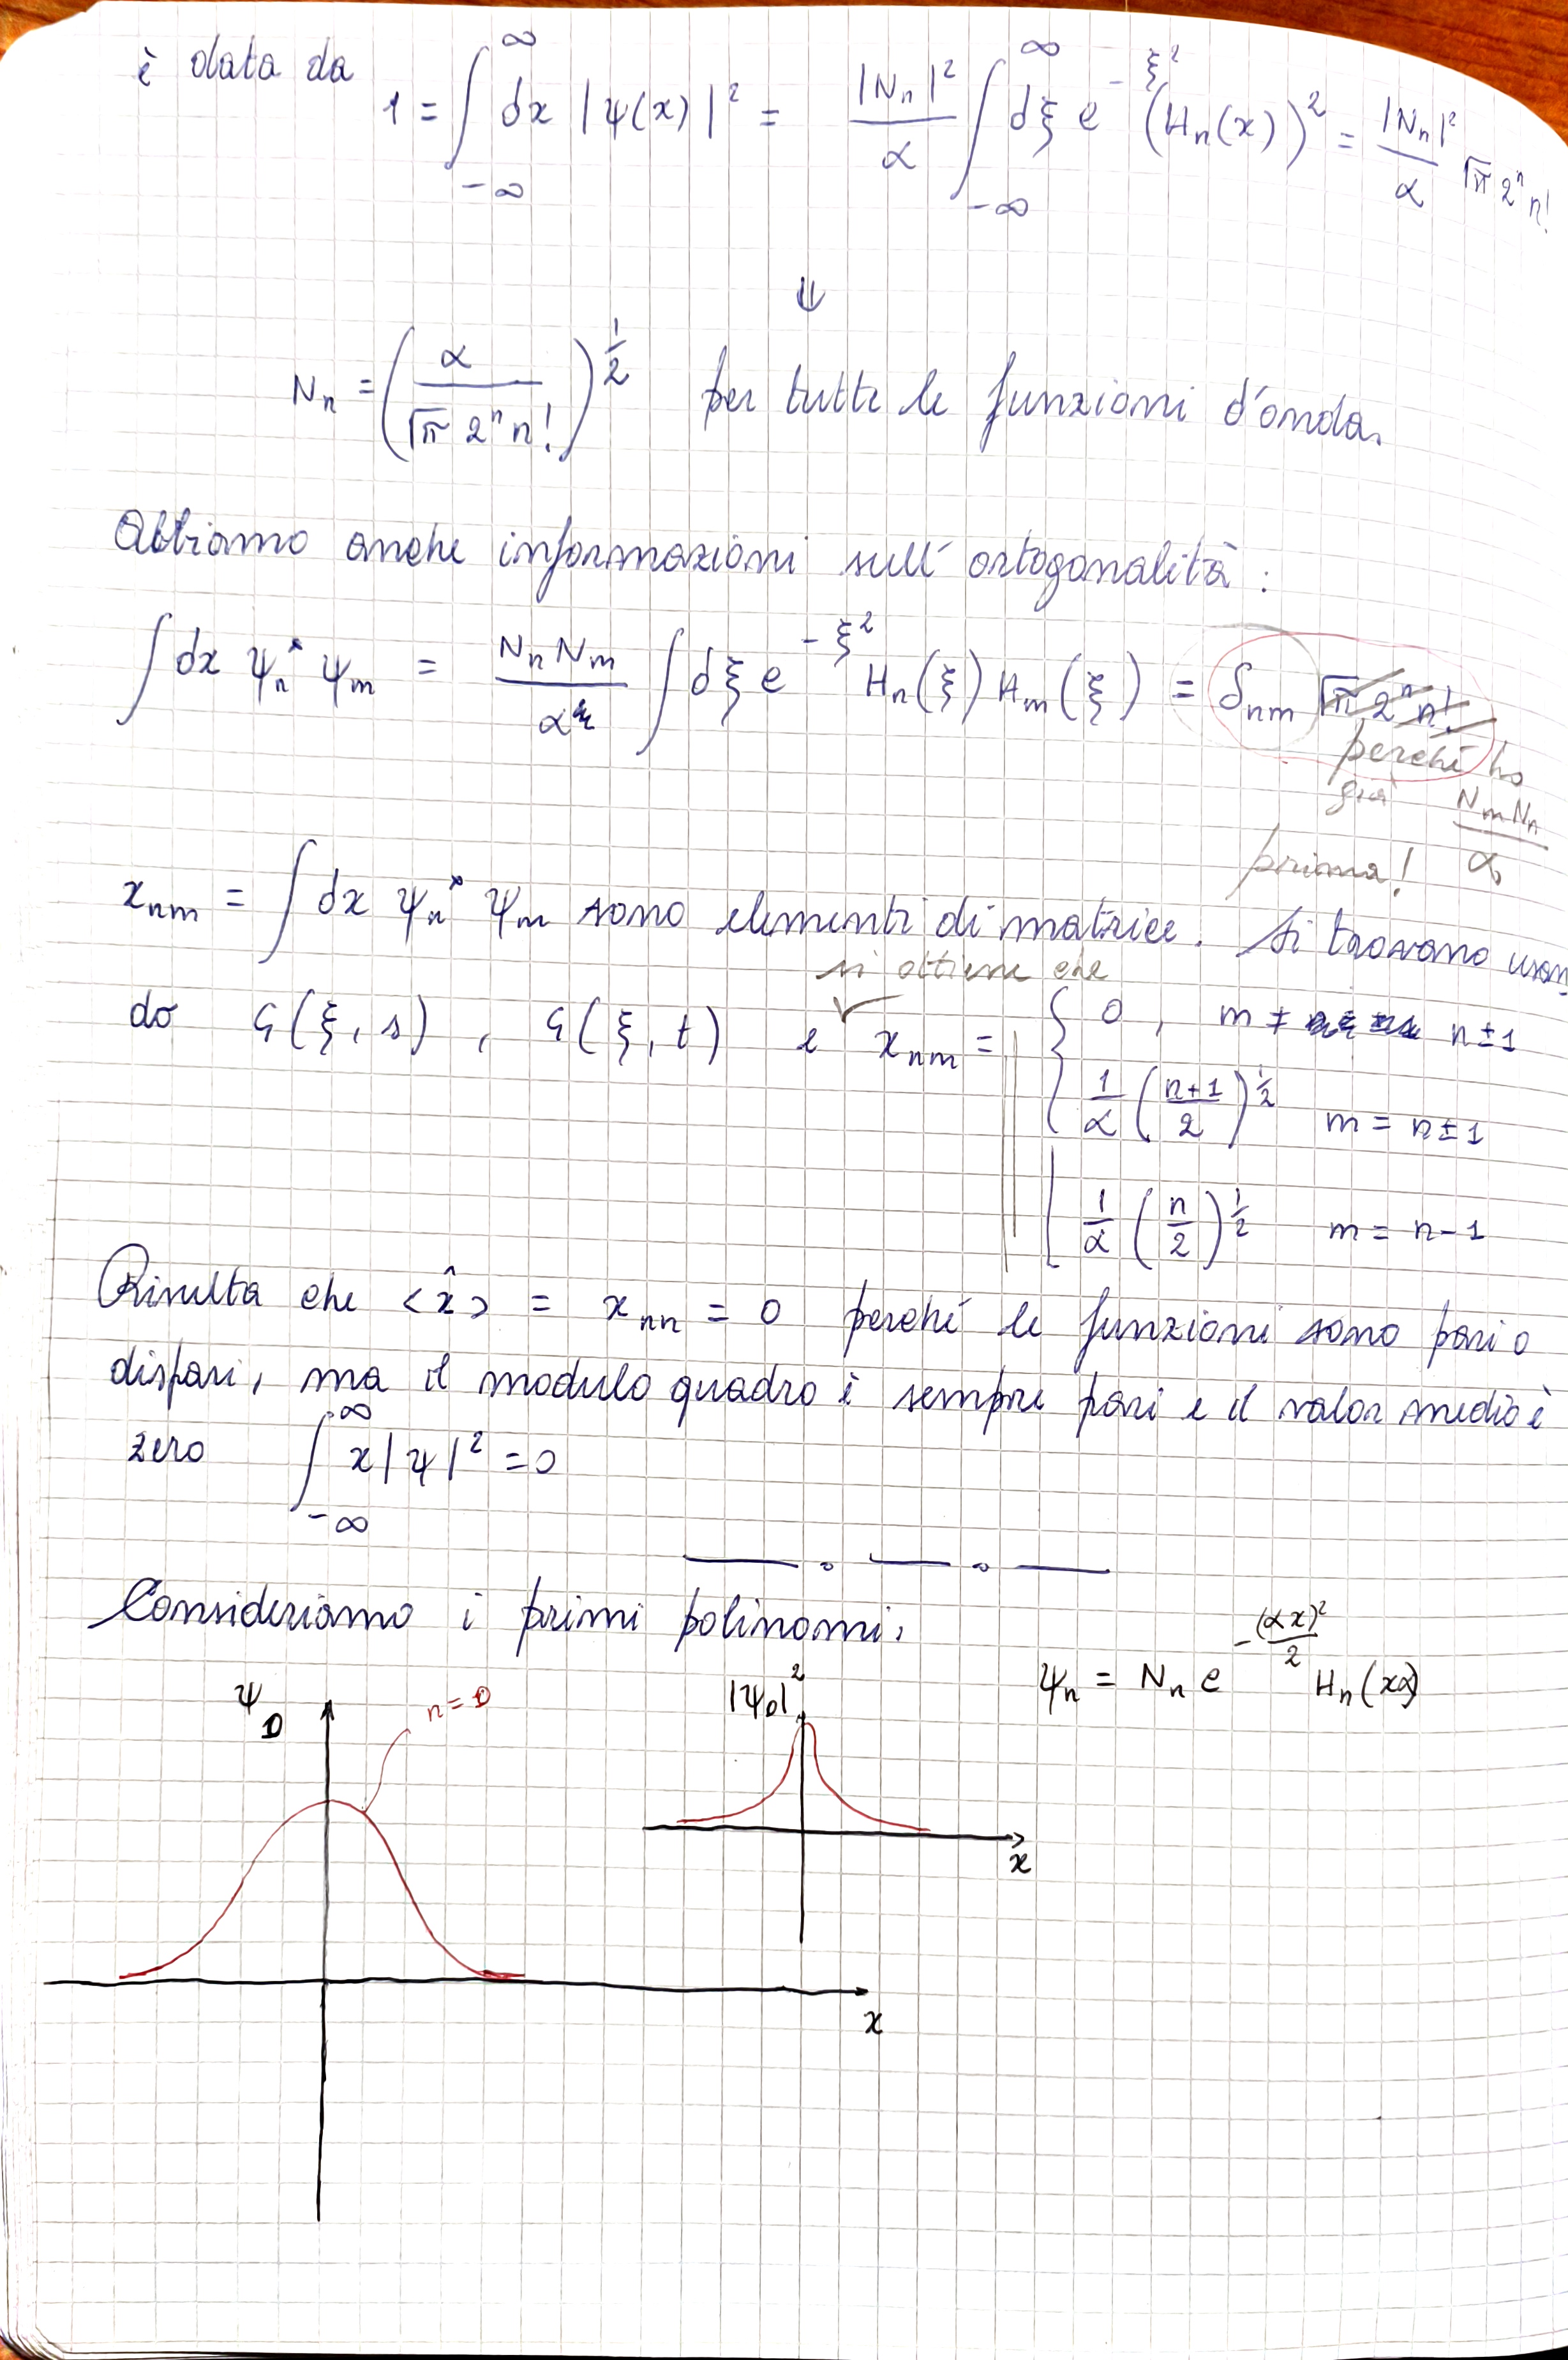 è data da 1 = ∫_{-∞}^{∞} dx |ψ(x)|² = |N_n|²/α ∫_{-∞}^{∞} dξ e^{-ξ²} (H_n(x))² = |N_n|²/α √π 2ⁿ n!
⇓
N_n = (α / (√π 2ⁿ n!))^{1/2} per tutte le funzioni d'onda.
Abbiamo anche informazioni sull'ortogonalità:
∫ dx ψ_n* ψ_m = N_n N_m / α ∫ dξ e^{-ξ²} H_n(ξ) H_m(ξ) = δ_{nm} √π 2ⁿ n!
perché ho
già N_m N_n / α
prima!
x_{nm} = ∫ dx ψ_n* ψ_m sono elementi di matrice. Si trovano usan
si ottiene che
do G(ξ, s), G(ξ, t) e x_{nm} = { 0, m ≠ n ± 1
1/α ((n+1)/2)^{1/2} m = n ± 1
1/α (n/2)^{1/2} m = n - 1
Risulta che <x̂> = x_{nn} = 0 perché le funzioni sono pari o
dispari, ma il modulo quadro è sempre pari e il valor medio è
zero ∫_{-∞}^{∞} x|ψ|² = 0
Consideriamo i primi polinomi.
ψ_n = N_n e^{-(αx)²/2} H_n(xα)
ψ_0
n=0
|ψ_0|²
x
x